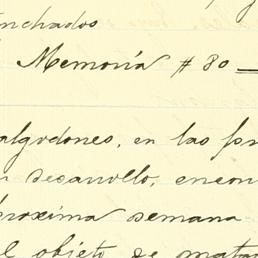 nchados
Memoria # 80
algodones, en las pr
desarrollo, encon
proxima semana
el objeto de matar